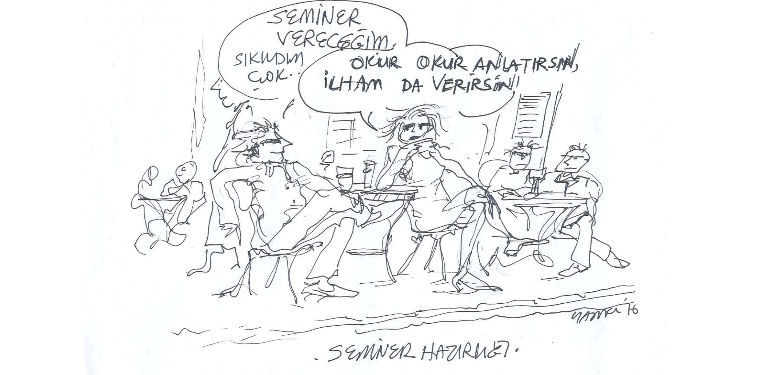 SEMİNER
VERECEĞİM,
SIKILDIM
ÇOK..
OKUR OKUR ANLATIRSIN,
İLHAM DA VERİRSİN!
. SEMİNER HAZIRLIĞI .